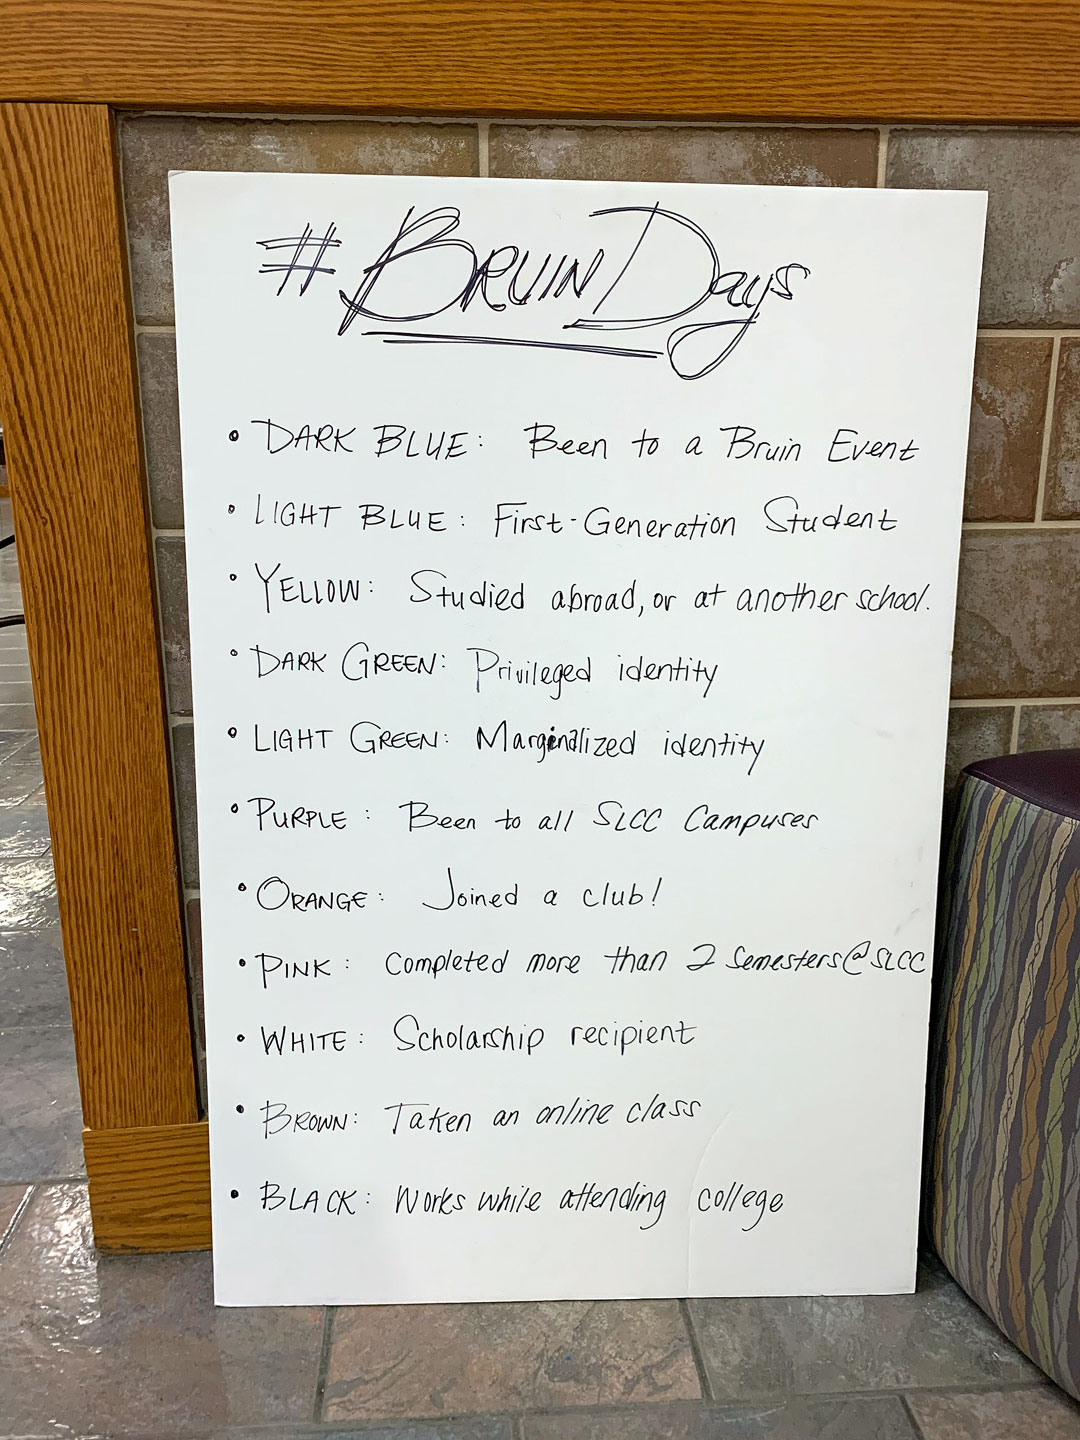 #BRUIN Days
• DARK BLUE: Been to a Bruin Event
• LIGHT BLUE: First-Generation Student
• YELLOW: Studied abroad, or at another school.
• DARK GREEN: Privileged identity
• LIGHT GREEN: Marginalized identity
• PURPLE: Been to all SLCC Campuses
• ORANGE: Joined a club!
• PINK: Completed more than 2 Semesters@SLCC
• WHITE: Scholarship recipient
• BROWN: Taken an online class
• BLACK: Works while attending college